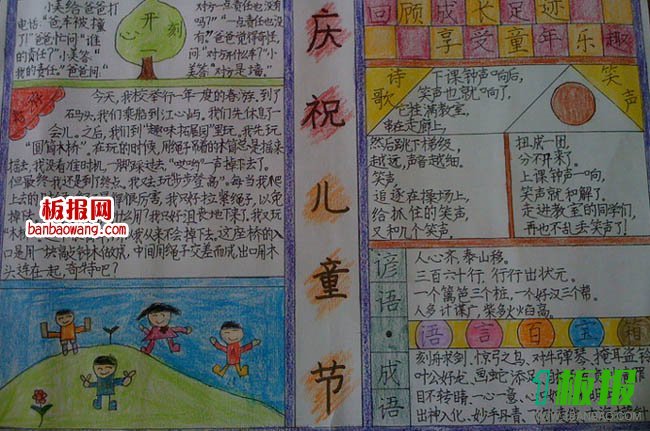 小美给爸爸打
电话"爸车被撞
了!"爸爸忙问"谁
的责任?"小美答
"我的责任。"爸爸问
开
一
刻
对方一点责任也没
有吗?""一点责任也没
有?"爸爸觉得奇怪,
问"对方什么车?"小
美答"对方是墙。"
今天,我校举行一年一度的春游,到了
石马头,我们乘船到江心屿。我们先休息一
会儿。之后,我们到"趣味拓展园"里玩,我先玩
"圆筒木桥"。在玩的时候,用绳子
总是摇来
摇去,我没看准时机一脚踩过去,"哎哟"一声掉下去了。
但最终我还是到终点。我又去玩"步步登高"。每当我爬
上去的时
很厉害,我只好拉紧绳子,以免
掉下
间?我只好沮丧地下来了。我又玩
"木
从来不会掉下去。这座桥的入
口是用一块
木做成,中间用绳子交差而成,出口用木
头连在一起,奇特吧?
板报网
banbaowang.com
庆
祝
儿
童
节
回顾成长足迹
享受童年乐趣
诗
歌
笑
声
下课钟声响后,
笑声也就响了,
它挂满教室,
串在走廊上,
然后跳下梯级,
越远,声音越细。
笑声
追逐在操场上,
给抓住的笑声,
又和几个笑声
扭成一团,
分不开来了。
上课钟声一响,
笑声就和解了。
走进教室的同学们,
再也不乱丢笑声了!
谚
语
·
成
语
人心齐,泰山移。
三百六十行,行行出状元。
一个篱笆三个桩,一个好汉三个帮。
人多计谋广,柴多火火高。
语言百宝箱
刻舟求剑、惊弓之鸟、对牛弹琴、掩耳盗铃
叶公好龙、画蛇添足
目不转睛、一心一意、心
出神入化、妙手丹青、一
板报